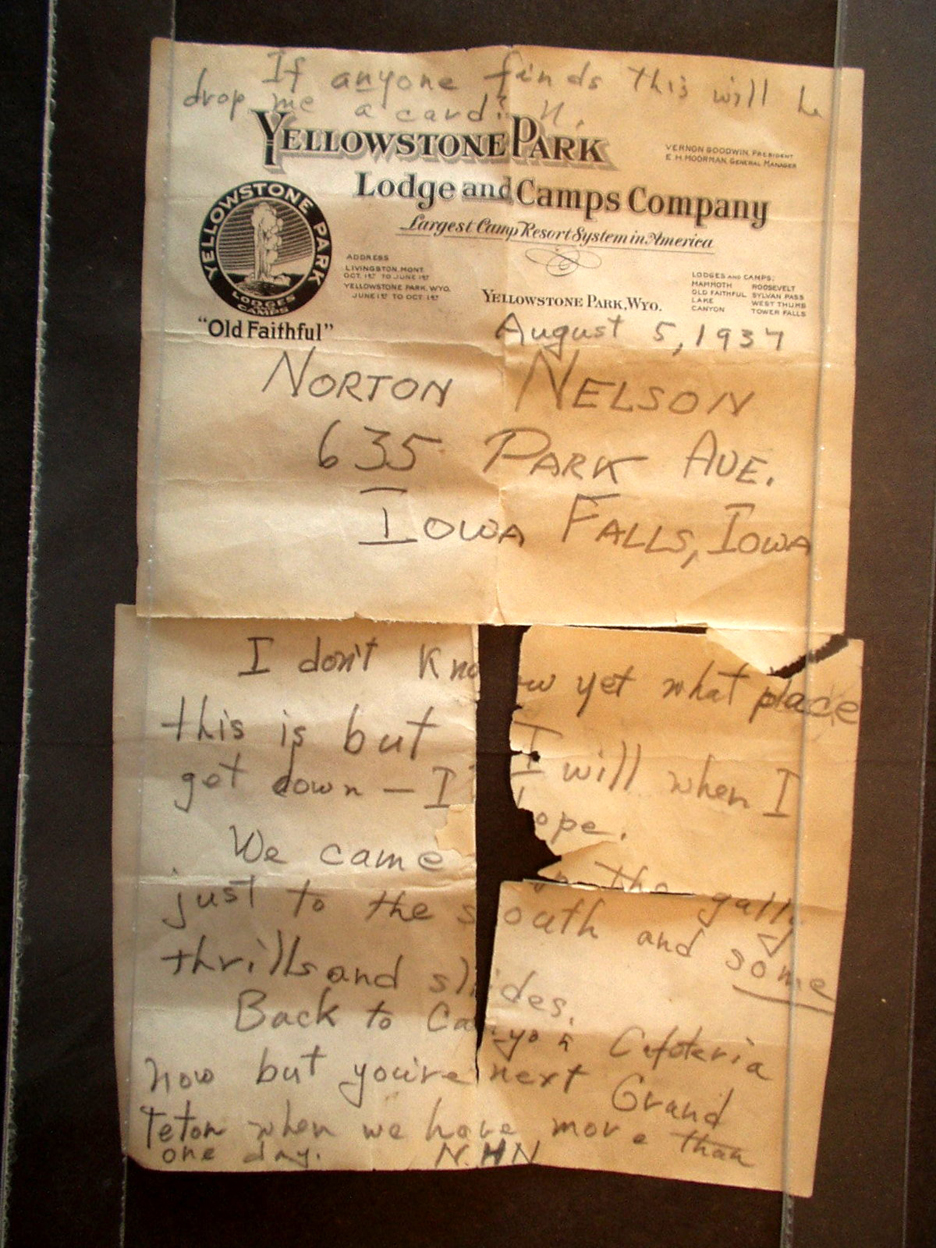 If anyone finds this will he
drop me a card? N.
YELLOWSTONE PARK
Lodge and Camps Company
Largest Camp Resort System in America
VERNON GOODWIN, PRESIDENT
E H MOORMAN, GENERAL MANAGER
YELLOWSTONE PARK
LODGES
CAMPS
"Old Faithful"
ADDRESS
LIVINGSTON, MONT.
OCT. 1ST TO JUNE 1ST
YELLOWSTONE PARK, WYO.
JUNE 1ST TO OCT. 1ST
YELLOWSTONE PARK, WYO.
LODGES AND CAMPS:
MAMMOTH ROOSEVELT
OLD FAITHFUL SYLVAN PASS
LAKE WEST THUMB
CANYON TOWER FALLS
August 5, 1937
NORTON NELSON
635 PARK AVE.
IOWA FALLS, IOWA
I don't know yet what place
this is but I will when I
get down — I hope.
We came the gully
just to the south and some
thrills and slides.
Back to Canyon Cafeteria
now but you're next Grand
Teton when we have more than
one day. N.HN